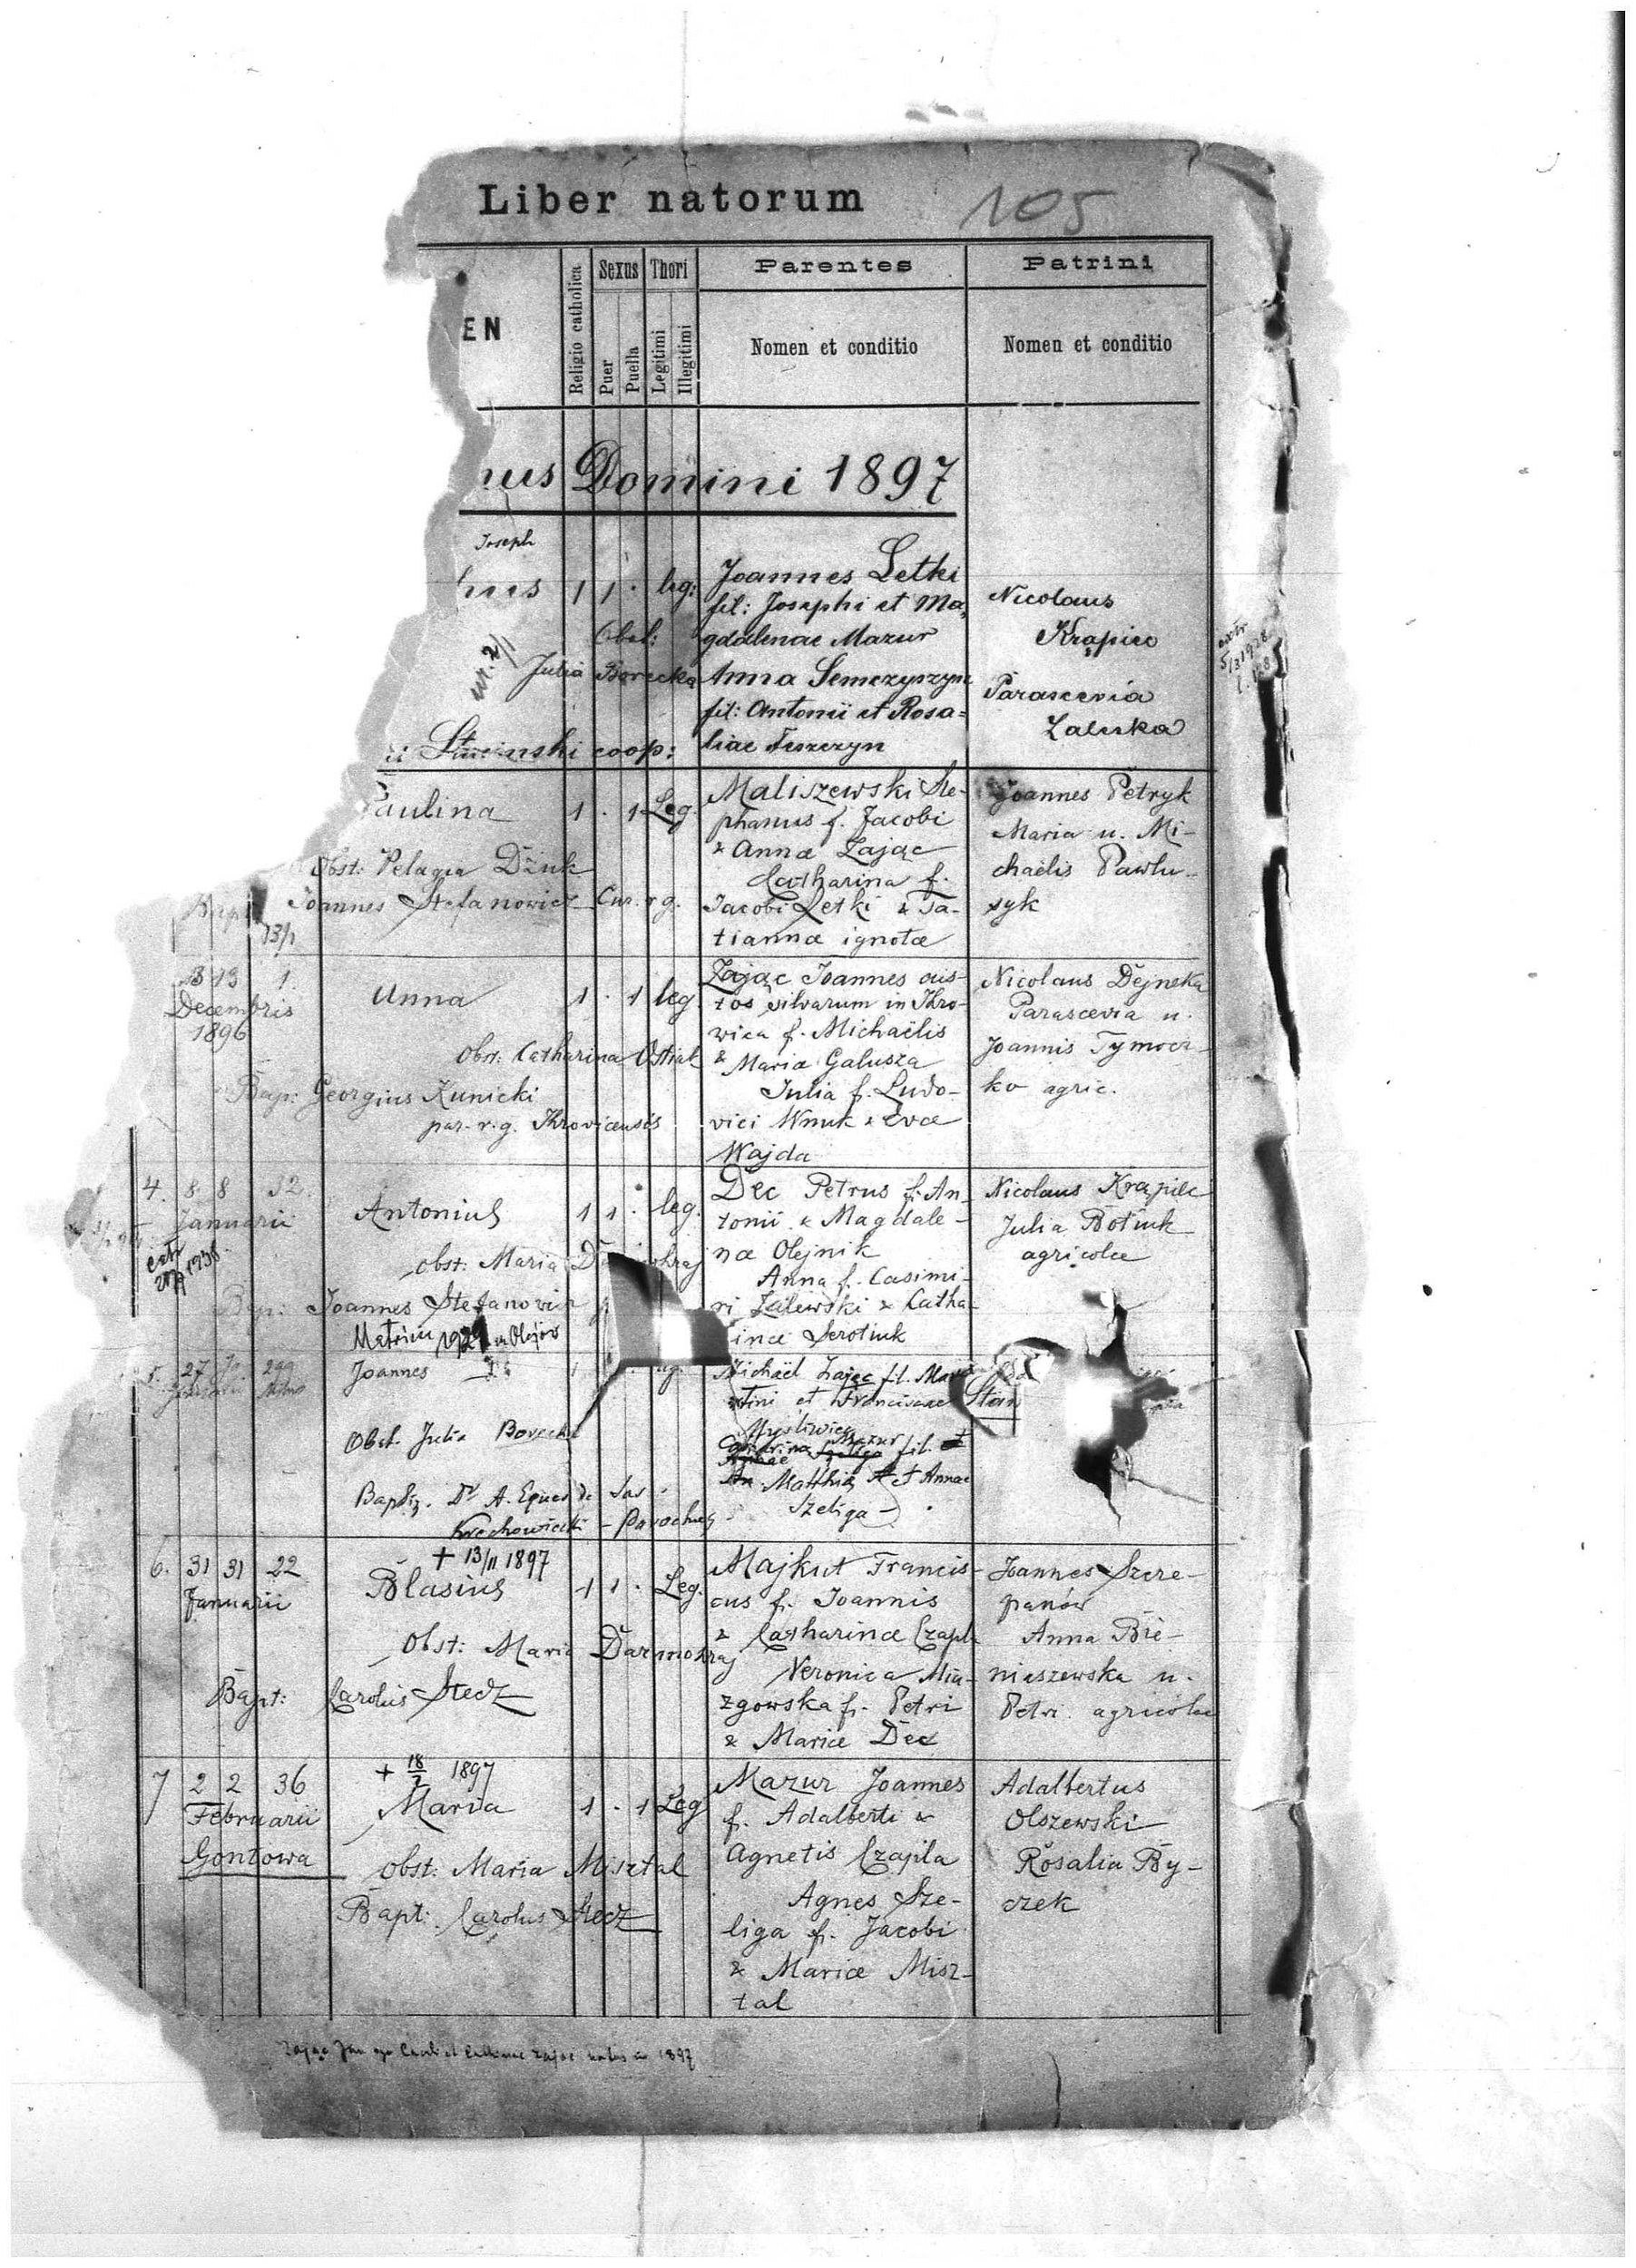 Liber natorum
105
EN
Religio catholica
Sexus
Thori
Puer
Puella
Legitimi
Illegitimi
Parentes
Patrini
Nomen et conditio
Nomen et conditio
nus Domini 1897
Joseph
hus 1 1 · leg:
Obst:
Julia Borecka
coop:
Joannes Letki
fil: Josephi et Ma
gdalenae Mazur
Anna Semczyszyn
fil: Antonii et Rosa=
liae
Nicolaus
Krąpiec
Parascevia
Załuska
Paulina 1 · 1 Leg.
Obst: Pelagia Dziuk
Joannes Stefanowicz Cur. r g.
13/1
Maliszewski Ste-
phanus f. Jacobi
& Annæ Zając
Catharina f.
Jacobi Letki & Ta-
tiannæ ignotæ
Joannes Petryk
Maria u. Mi-
chaëlis Pawlu-
syk
13 1.
Decembris
1896
Anna 1 · 1 leg.
Obst: Catharina
Bap: Georgius Kunicki
par. r. g. Ihrovicensis
Zając Joannes cus-
tos silvarum in Ihro-
wica f. Michaëlis
& Mariæ Galusza
Julia f. Ludo-
vici Wnuk & Evæ
Wajda
Nicolaus Dejneka
Parascevia u.
Joannis Tymocz-
ko agric.
4. 8. 8 12.
Januarii
Antonius 1 1 · leg.
extr
1938
obst: Maria
Bap: Joannes Stefanowicz
1921 in Olejów
Dec Petrus f. An-
tonii & Magdale-
næ Olejnik
Anna f. Casimi-
ri Zalewski & Catha-
inæ Serotiuk
Nicolaus Krąpiec
Julia Botiuk
agricolæ
5. 27
Joannes
Obst. Julia Borecka
Baptiz. Dr A. Eques de Sas
Krechowiecki - Parochus
Michaël Zając fil. Mar
tini et Franciscae
Mysliwiec
Mazur
fil.
Matthiæ et Annae
Szeliga -
Stan
6. 31 31 22
Januarii
+ 13/II 1897
Blasius 1 1 · Leg.
Obst: Maria Darmokraj
Bapt: Carolus Stecz
Majkut Francis-
cus f. Joannis
& Catharinæ Czapla
Veronica Mia-
zgowska f. Petri
& Mariæ Dec
Joannes Szcze-
panów
Anna Bie-
niaszewska u.
Petri agricolæ
7 2 2 36
Februarii
Gontowa
+ 18/7 1897
Maria 1 · 1 Leg
Obst: Maria Misztal
Bapt: Carolus Stecz
Mazur Joannes
f. Adalberti &
Agnetis Czapla
Agnes Sze-
liga f. Jacobi
& Mariæ Misz-
tal
Adalbertus
Olszewski
Rosalia By-
czek
Zając Jan
Zając natus 1897